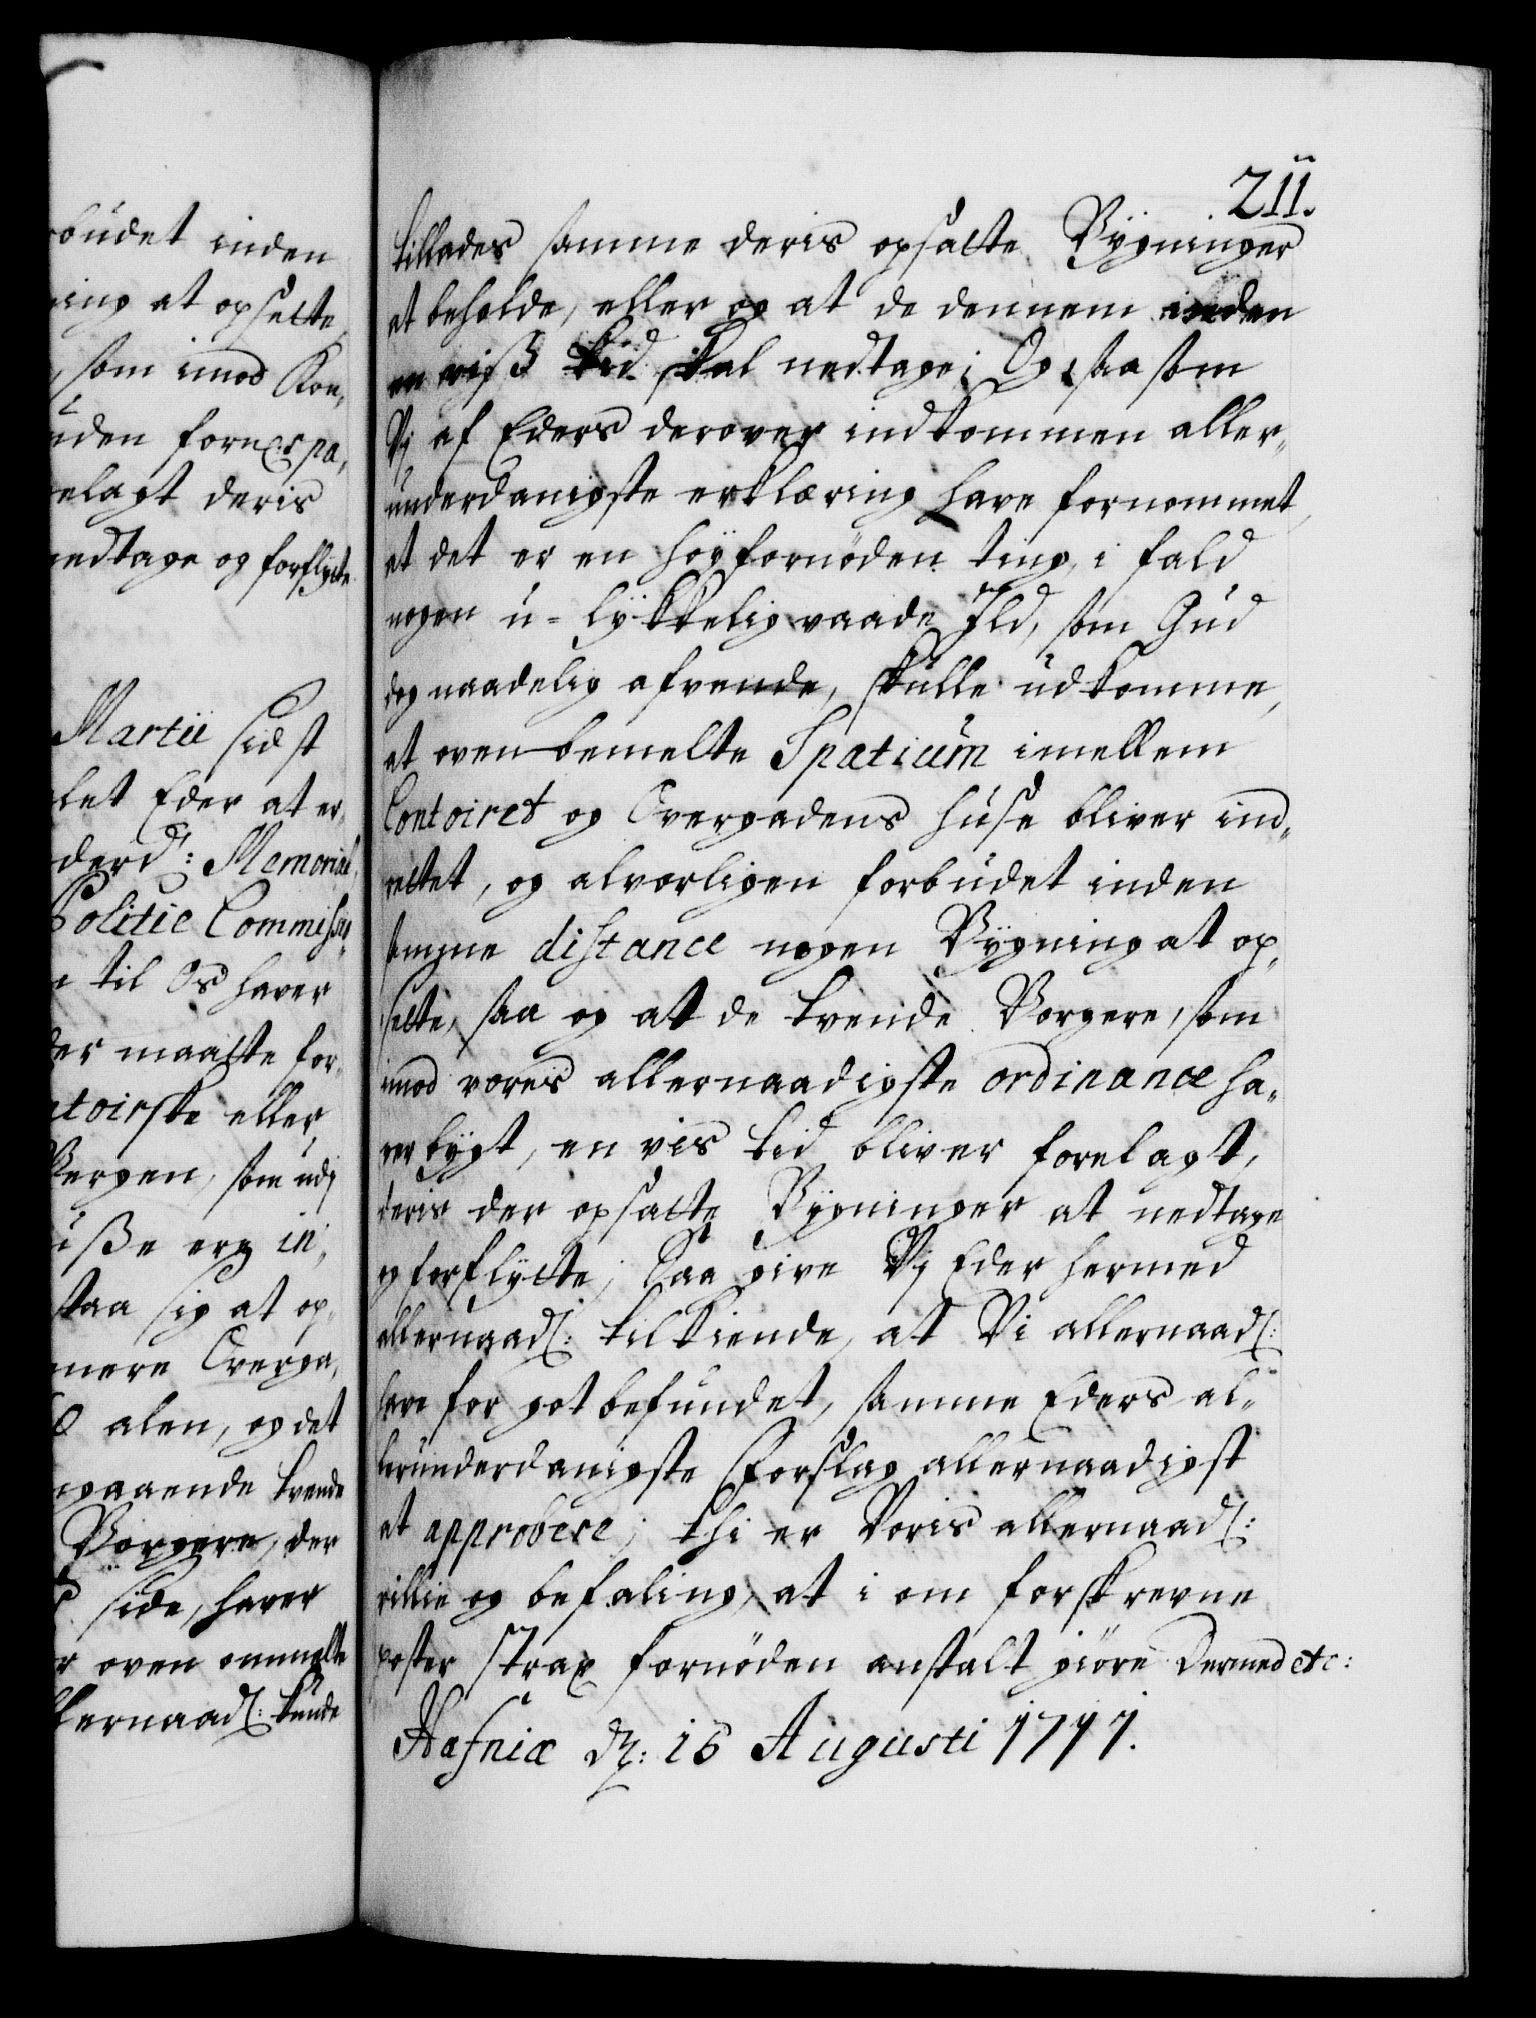 budet inden
ning at opsette,
som imod Kon,
uden fornespa,
elagt deris
nedtage og forflytte
Martii sidst
let Eder at er,
derd: Memorial,
Politie Commissa,
til Os haver
der maatte for,
ntoirske eller
Bergen, som udj
uße ere in,
staa sig at op,
mere Overga,
0 alen, og det
gaaende tvende
Borgere, der
side, haver
oven ommelte
llernaadl: kunde
211.
tillades samme deris opsatte Bygninger
at beholde, eller og at de dennem inden
en viß tid skal nedtage; Og saasom
Vj af Eders derover indkommen aller,,
underdanigste erklæring have fornommet,
at det er en høyfornøden ting, i fald
nogen u-lykkelig vaade Ild, som Gud
dog naadelig afvende, skulle udkomme,
at ovenbemelte Spatium imellem
Contoiret og Overgadens huse bliver ind,,
rettet, og alvorligen forbudet inden
samme distance nogen Bygning at op,,
sette, saa og at de tvende Borgere, som
imod vores allernaadigste ordinance ha,,
ver bygt, en vis tid bliver forelagt,
deris der opsatte Bygninger at nedtage
og forflytte; Saa give Vj Eder hermed
allernaadl: tilkiende, at Vi allernaadl:
have for got befundet, samme Eders al,,
lerunderdanigste Forslag allernaadigst
at approbere; thi er Voris allernaadl:
villie og befaling, at i om forskrevne
poster strax fornøden anstalt giøre Dermed etc:
Hafniæ dn: 16 Augusti 1717.